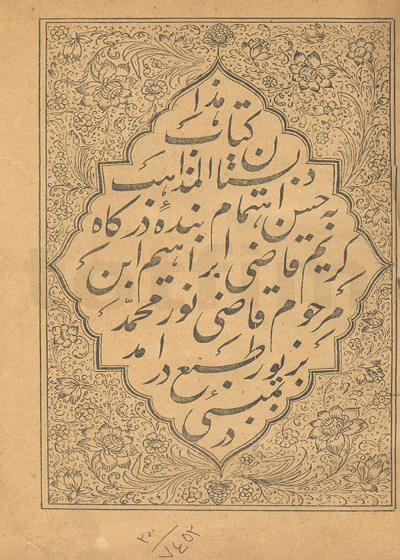 هذا
کتاب
دبستان المذاهب
به حسن اهتمام بندۀ درکاه
کریم قاضی ابراهیم ابن
مرحوم قاضی نور محمّد
بزیور طبع در امد
در بمبئی
۲۰۰
۷۴۵۲